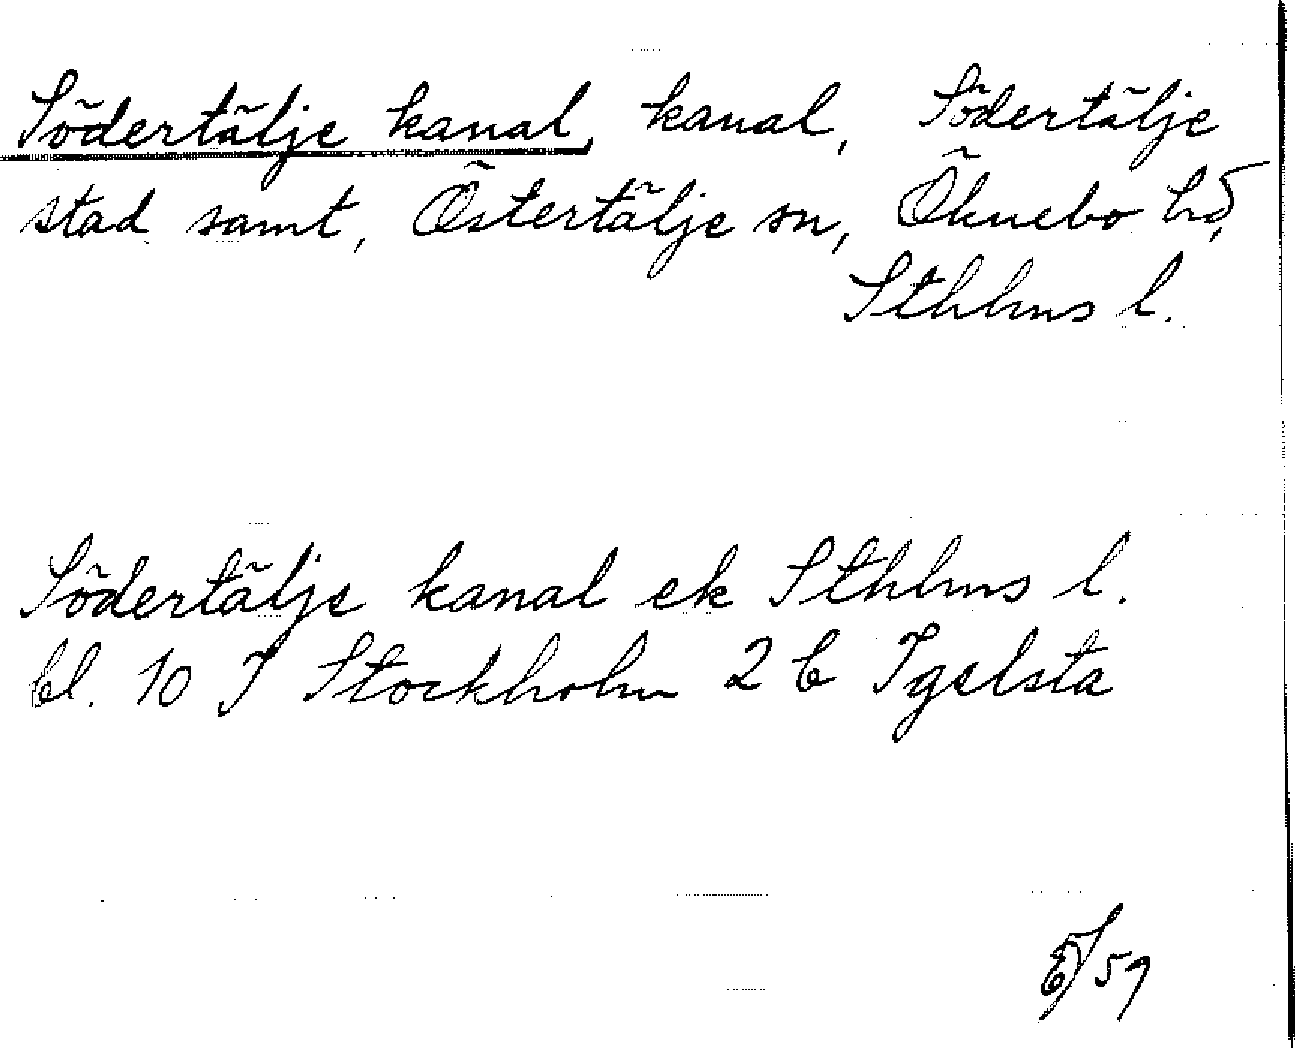 Södertälje kanal, kanal, Södertälje
stad samt, Östertälje sn, Öknebo hd,
Sthlms l.
Södertälje kanal ek Sthlms l.
bl. 10 I Stockholm 2 C Igelsta
59